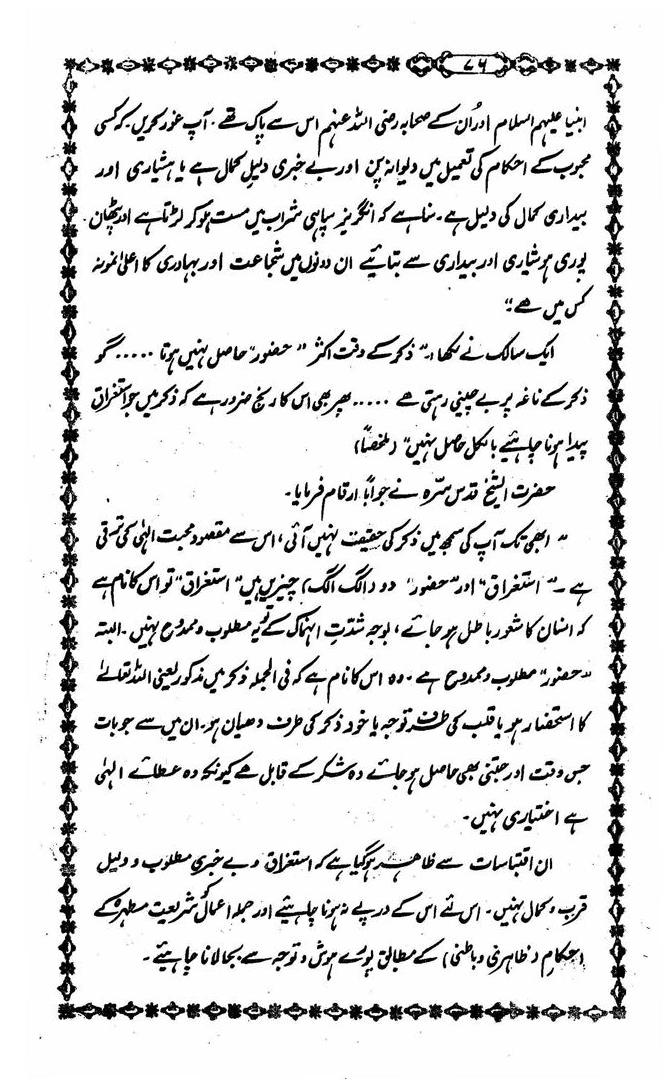 ۷۶
ابنیا علیہم السلام اور اُن کے صحابہ رضی اللہ عنہم اس سے پاک تھے۔ آپ غور کریں۔ کہ کسی
محبوب کے احکام کی تعمیل میں دیوانہ پن اور بے خبری دلیل کمال ہے یا ہشیاری اور
بیداری کمال کی دلیل ہے۔ سنا ہے کہ انگریز سپاہی شراب میں مست ہو کر لڑتا ہے اور پٹھان
پوری ہوشیاری اور بیداری سے بتائیے ان دونوں میں شجاعت اور بہادری کا اعلیٰ نمونہ
کس میں ہے؟"
ایک سالک نے لکھا:۔ "ذکر کے وقت اکثر "حضور" حاصل نہیں ہوتا ..... گو
ذکر کے ناغہ پر بے چینی رہتی ہے ..... پھر بھی اس کا رنج ضرور ہے کہ ذکر میں جو استغراق
پیدا ہونا چاہئیے بالکل حاصل نہیں" (ملخصاً)
حضرت الشیخ قدس سرہ نے جواباً ارقام فرمایا۔
"ابھی تک آپ کی سمجھ میں ذکر کی حقیقت نہیں آئی، اس سے مقصود محبت الہٰی کی ترقی
ہے ۔" استغراق" اور "حضور" دو (الگ الگ) چیزیں ہیں" استغراق" تو اس کا نام ہے
کہ انسان کا شعور باطل ہو جائے، بوجہ شدتِ انہماک کے تو یہ مطلوب و ممدوح نہیں۔ البتہ
"حضور" مطلوب و ممدوح ہے۔ وہ اس کا نام ہے کہ فی الجملہ ذکر میں مذکور یعنی اللہ تعالےٰ
کا استحضار ہو یا قلب کی طرف توجہ یا خود ذکر کی طرف دھیان ہو۔ ان میں سے جو بات
جس وقت اور جتنی بھی حاصل ہو جائے وہ شکر کے قابل ہے کیونکہ وہ عطائے الہٰی
ہے اختیاری نہیں۔
ان اقتباسات سے ظاہر ہو گیا ہے کہ استغراق و بے خبری مطلوب و دلیل
قرب و کمال نہیں۔ اس لئے اس کے درپے نہ ہونا چاہئیے اور جملہ اعمال کو شریعت مطہرہ کے
احکام (ظاہری و باطنی) کے مطابق پورے ہوش و توجہ سے بجا لانا چاہئیے۔